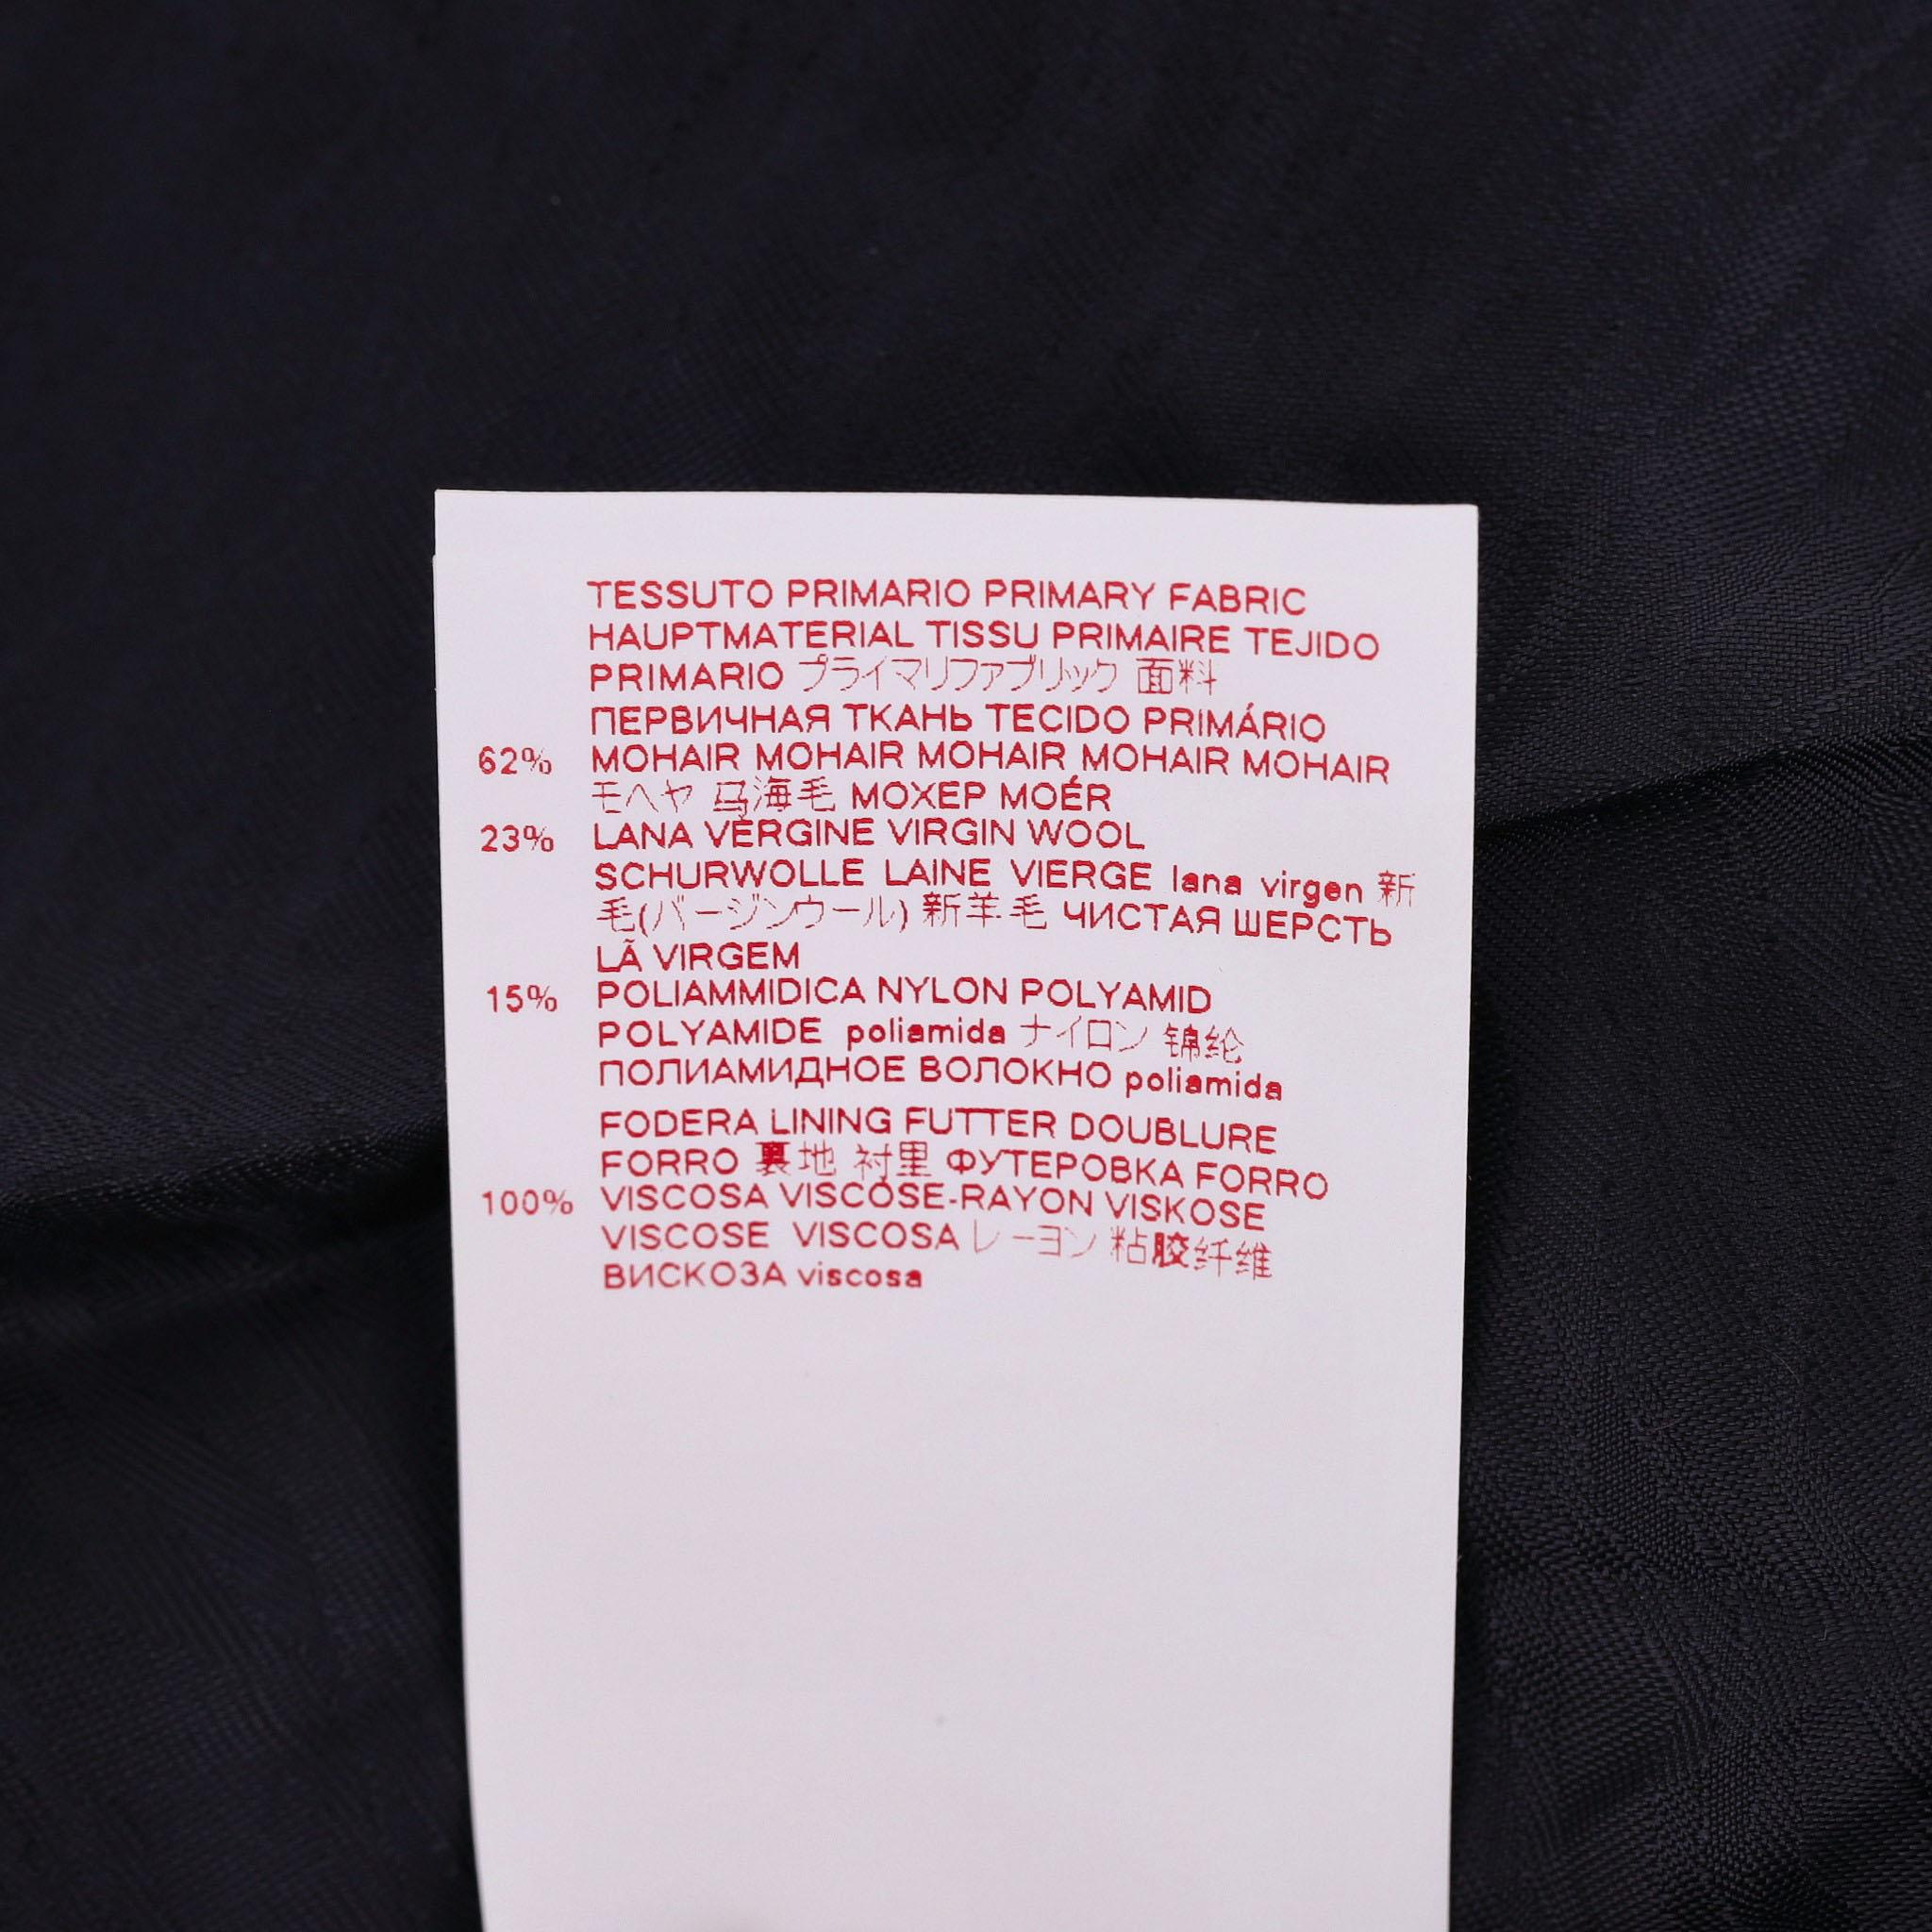 TESSUTO PRIMARIO PRIMARY FABRIC
HAUPTMATERIAL TISSU PRIMAIRE TEJIDO
PRIMARIO プライマリファブリック 面料
ПЕРВИЧНАЯ ТКАНЬ TECIDO PRIMÁRIO
62% MOHAIR MOHAIR MOHAIR MOHAIR MOHAIR
モヘヤ 马海毛 МОХЕР MOÉR
23% LANA VERGINE VIRGIN WOOL
SCHURWOLLE LAINE VIERGE lana virgen 新
毛(バージンウール) 新羊毛 ЧИСТАЯ ШЕРСТЬ
LÃ VIRGEM
15% POLIAMMIDICA NYLON POLYAMID
POLYAMIDE poliamida ナイロン 锦纶
ПОЛИАМИДНОЕ ВОЛОКНО poliamida
FODERA LINING FUTTER DOUBLURE
FORRO 裏地 衬里 ФУТЕРОВКА FORRO
100% VISCOSA VISCOSE-RAYON VISKOSE
VISCOSE VISCOSA レーヨン 粘胶纤维
ВИСКОЗА viscosa